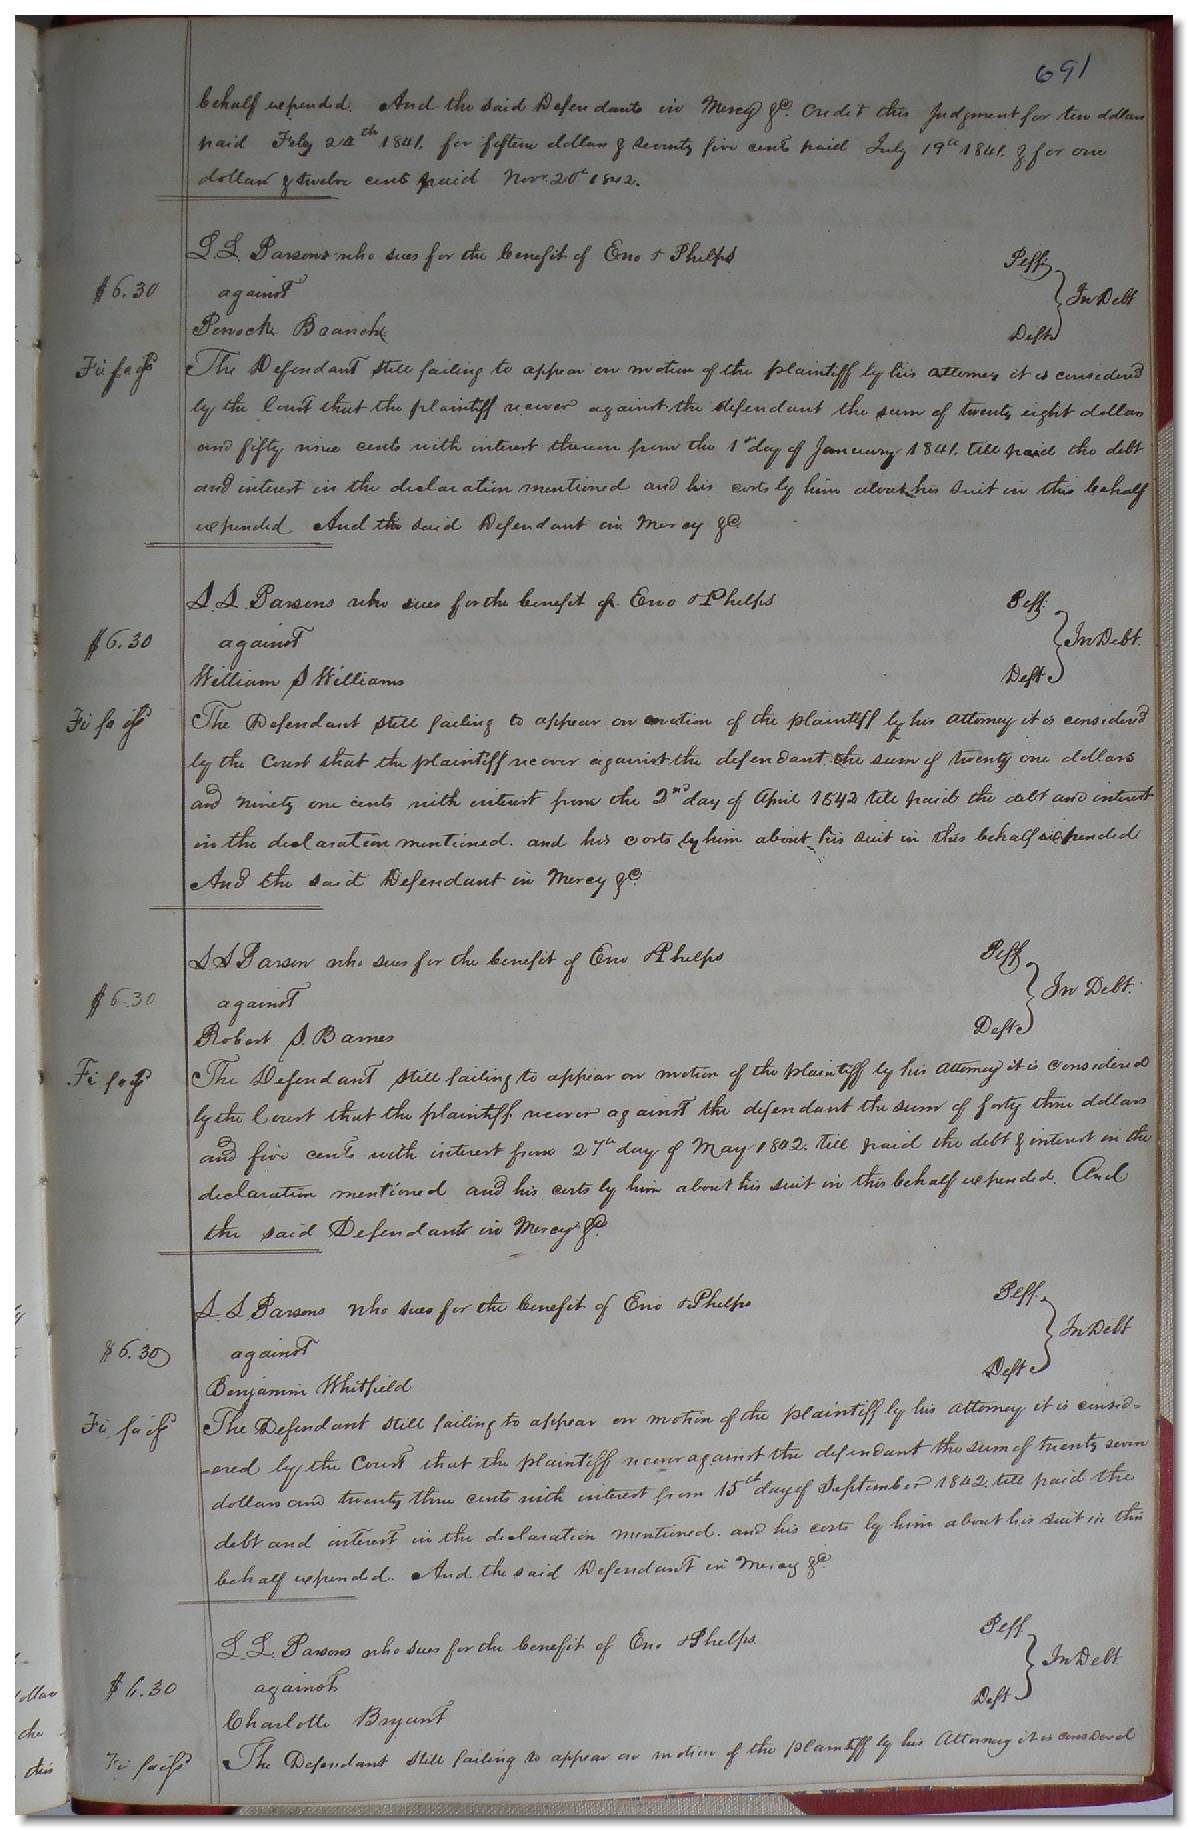 691
behalf expended. And the said Defendants in Mercy &c. Credit this Judgment for ten dollars
paid Feby 24th 1841. for fifteen dollars & seventy five cents paid July 19th 1841. & for one
dollar & twelve cents paid Novr. 20th 1842.
L. L. Parsons who sues for the benefit of Eno & Phelps Plff
$6.30 against In Debt
Penock Branch Deft
Fi fa issd The Defendant still failing to appear on motion of the plaintiff by his attorney it is considered
by the Court that the plaintiff recover against the defendant the sum of twenty eight dollars
and fifty nine cents with interest thereon from the 1st day of January 1841. till paid the debt
and interest in the declaration mentioned and his costs by him about his suit in this behalf
expended. And the said Defendant in Mercy &c.
S. S. Parsons who sues for the benefit of Eno & Phelps Plff.
$6.30 against In Debt.
William S Williams Deft
Fi fa issd The Defendant still failing to appear on motion of the plaintiff by his attorney it is considered
by the Court that the plaintiff recover against the defendant the sum of twenty one dollars
and ninety one cents with interest from the 2nd day of April 1842 till paid the debt and interest
in the declaration mentioned. and his costs by him about his suit in this behalf expended
And the said Defendant in Mercy &c.
S S Parson who sues for the benefit of Eno & Phelps Plff
$6.30 against In Debt.
Robert S. Barnes Deft
Fi fa issd The Defendant still failing to appear on motion of the plaintiff by his attorney it is considered
by the Court that the plaintiff recover against the defendant the sum of forty three dollars
and five cents with interest from 27th day of May 1842. till paid the debt & interest in the
declaration mentioned and his costs by him about his suit in this behalf expended. And
the said Defendants in Mercy &c.
S. S. Parsons who sues for the benefit of Eno & Phelps Plff.
$6.30 against In Debt
Benjamin Whitfield Deft
Fi fa issd The Defendant still failing to appear on motion of the plaintiff by his attorney it is consid=
=ered by the Court that the plaintiff recover against the defendant the sum of twenty seven
dollars and twenty three cents with interest from 15th day of September 1842. till paid the
debt and interest in the declaration mentioned. and his costs by him about his suit in this
behalf expended. And the said Defendant in Mercy &c.
L. L. Parsons who sues for the benefit of Eno & Phelps. Plff
$6.30 against In Debt
Charlotte Bryant Deft
Fi fa issd The Defendant still failing to appear on motion of the plaintiff by his Attorney it is considered